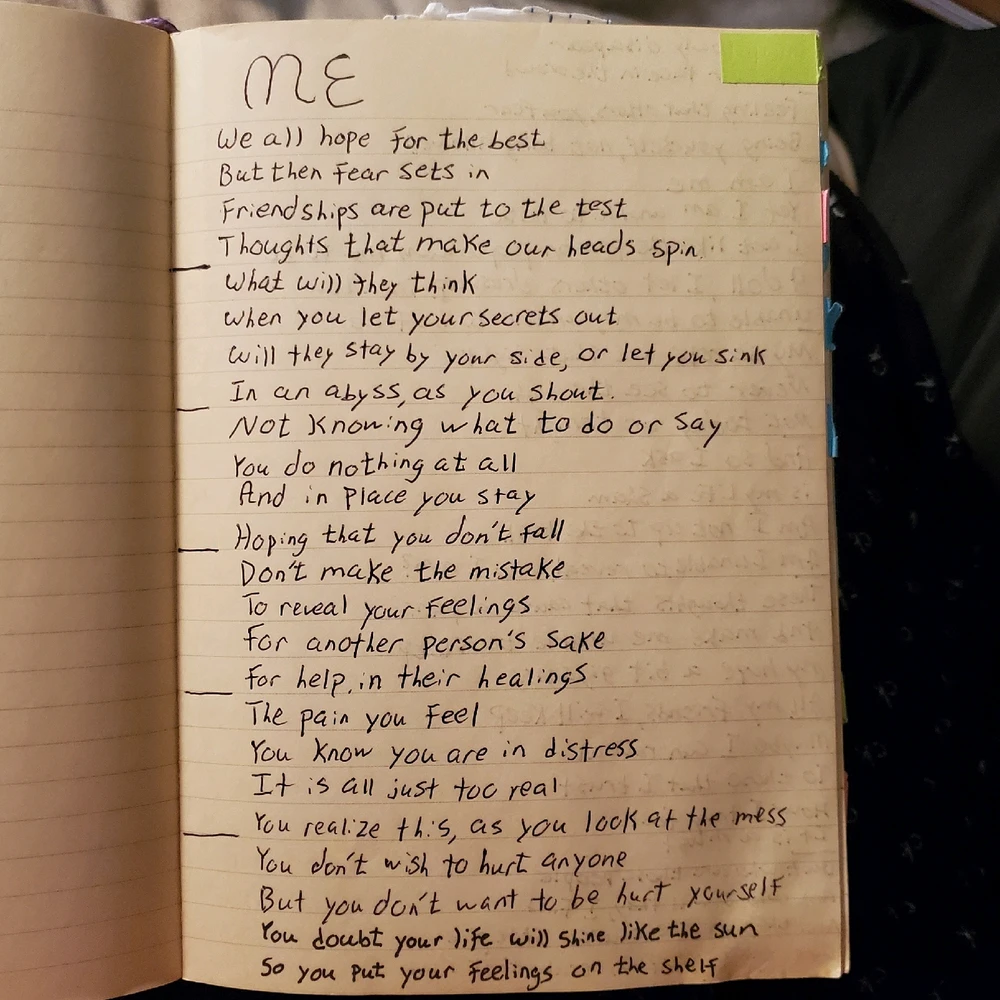 ME
We all hope for the best
But then fear sets in
Friendships are put to the test
Thoughts that make our heads spin
What will they think
When you let your secrets out
Will they stay by your side, or let you sink
In an abyss, as you shout.
Not knowing what to do or say
You do nothing at all
And in place you stay
Hoping that you don't fall
Don't make the mistake
To reveal your feelings
For another person's sake
For help, in their healings
The pain you feel
You know you are in distress
It is all just too real
You realize this, as you look at the mess
You don't wish to hurt anyone
But you don't want to be hurt yourself
You doubt your life will shine like the sun
So you put your feelings on the shelf